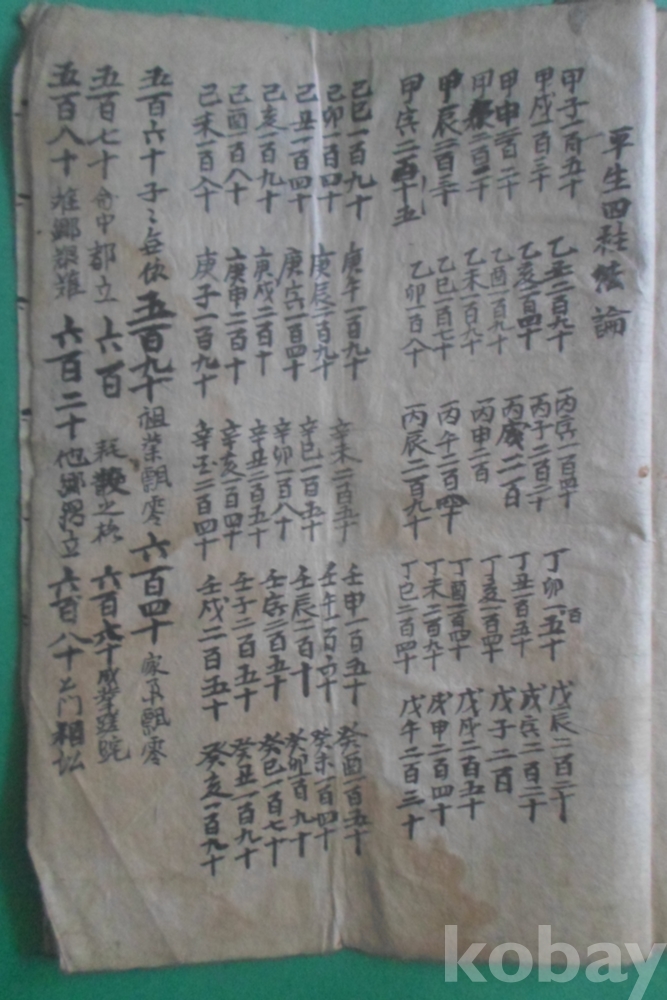 平生四柱法論
甲子一百五十 乙丑二百九十 丙寅一百四十 丁卯一百五十 戊辰二百二十
甲戌一百三十 乙亥二百四十 丙子二百二十 丁丑一百五十 戊寅二百二十
甲申一百二十 乙酉一百九十 丙戌二百 丁亥一百四十 戊子二百
甲 二百二十 乙未一百六十 丙申二百 丁酉一百四十 戊戌二百五十
甲辰二百三十 乙巳一百七十 丙午二百四十 丁未二百九十 戊申二百四十
甲寅二百十五 乙卯一百八十 丙辰二百九十 丁巳二百四十 戊午二百三十
己巳一百九十 庚午一百九十 辛未二百五十 壬申一百五十 癸酉一百五十
己卯一百四十 庚辰二百九十 辛巳一百五十 壬午一百四十 癸未一百四十
己丑一百四十 庚寅一百四十 辛卯一百八十 壬辰二百十 癸卯一百九十
己亥一百九十 庚戌二百十 辛丑一百五十 壬寅二百五十 癸巳一百七十
己酉一百八十 庚申二百十 辛亥一百四十 壬子二百五十 癸丑一百九十
己未一百八十 庚子一百九十 辛 二百四十 壬戌二百五十 癸亥一百九十
五百六十 子々無依 五百九十 祖業飄零 六百四十 家 飄零
五百七十 命中都立 六百 散之格 六百六十
五百八十 六百二十 他鄉 立 六百八十 門相
kobay